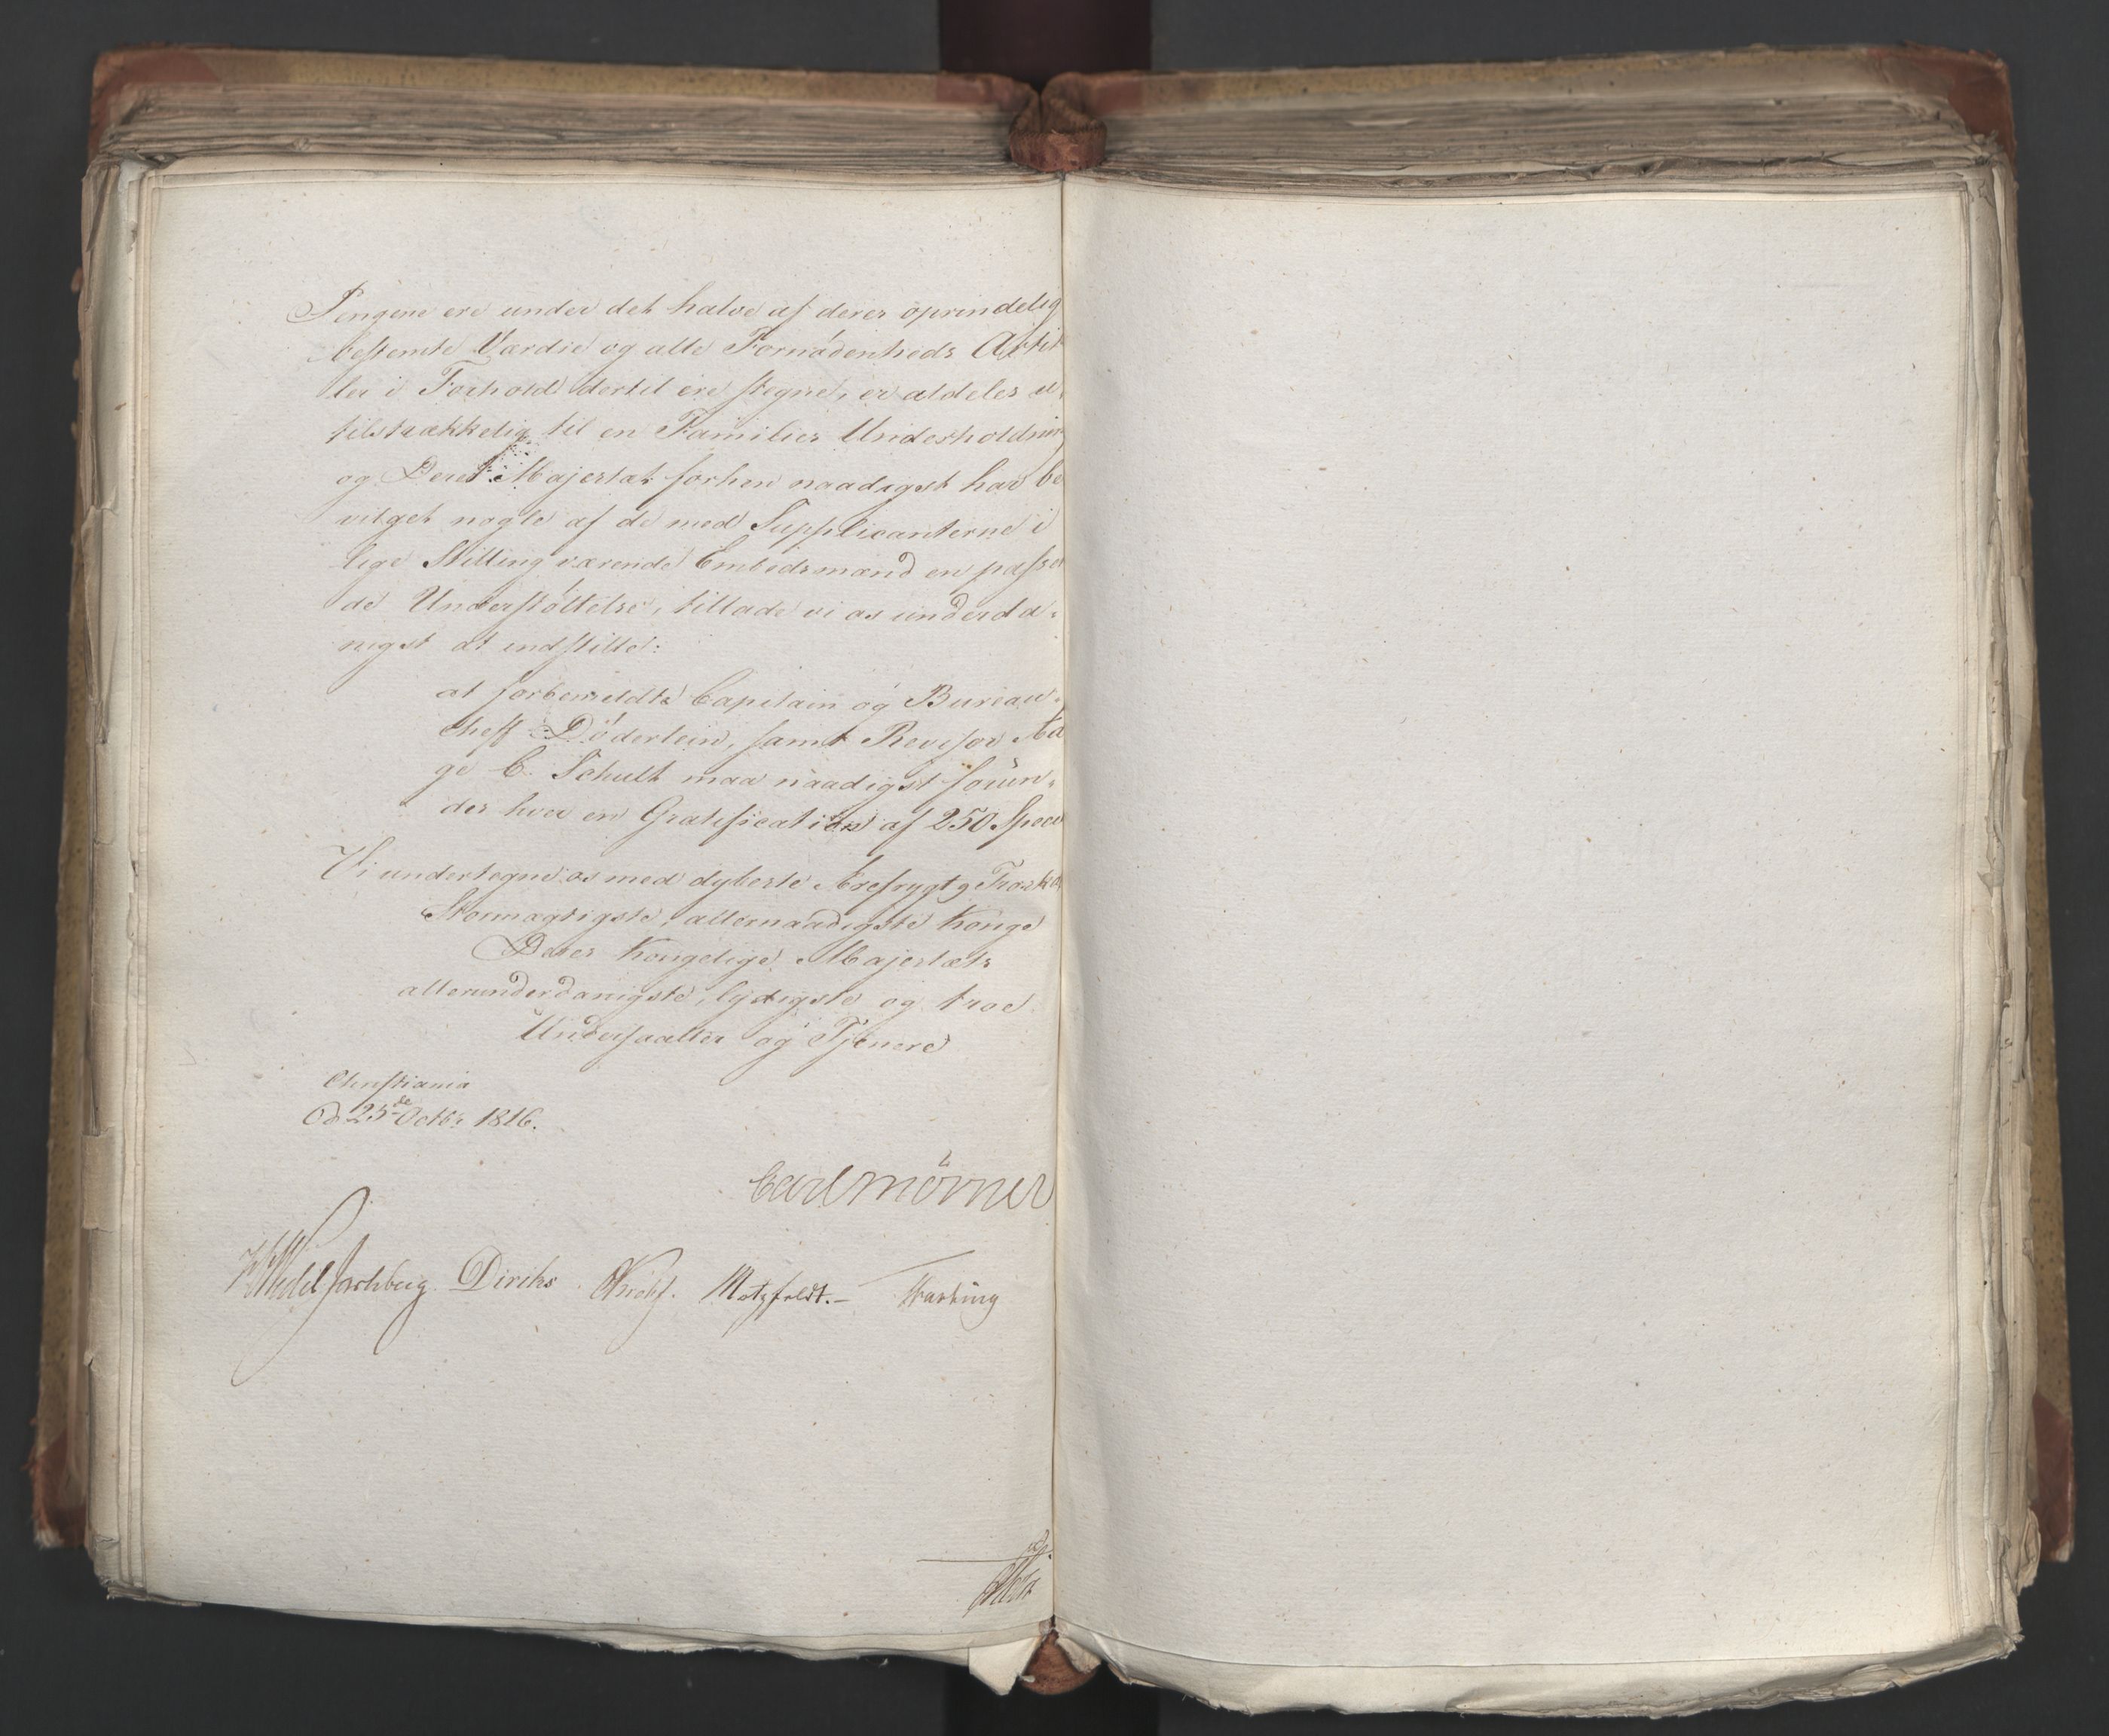 Pengene ere under det halve af deres oprindelig
bestemte Værdie og alle Fornødenheds Artik
ler i Forhold dertil ere stegne, er aldeles u,
tilstrækkelig til en Families Underholdning
og Deres Majestæt forhen naadigst har be
vilget nogle af de med Supplicanterne i
lige Stilling værende Embedsmænd en passen
de Understøttelse, tillade vi os underda-
nigst at indstille:
at forbemeldte Capitain og Bureau-
cheff Döderlein, samt Revisor Aa
ge C. Schult maa naadigst forun-
des hver en Gratification af 250 Specier
Vi undertegne os med dybeste Ærefrygt
Stormægtigste, allernaadigste Konge
Deres Kongelige Majestæts
allerunderdanigste, lydigste og troe
Undersaatter og Tjenere
Christiania
d 25de Octbr 1816.
Carl Mörner
Wedel Jarlsberg Diriks Krohg. Motzfeldt.-